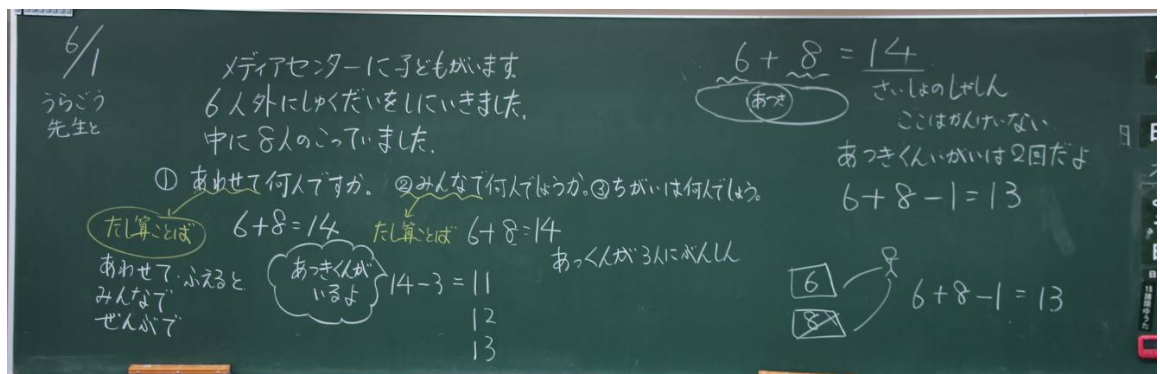 6/1
うらごう
先生と
メディアセンターに子どもがいます。
6人外にしゅくだいをしにいきました。
中に8人のこっていました。
① あわせて何人ですか。 ②みんなで何人でしょうか。③ちがいは何人でしょう。
たし算ことば 6+8=14 たし算ことば 6+8=14
あわせて ふえると
みんなで
ぜんぶで
あつきくんが
いるよ
14-3=11
12
13
あっくんが3人にぶんしん
6+8=14
あつき
さいしょのしゃしん
ここはかんけいない
あつきくんいがいは2回だよ
6+8-1=13
6
8
6+8-1=13